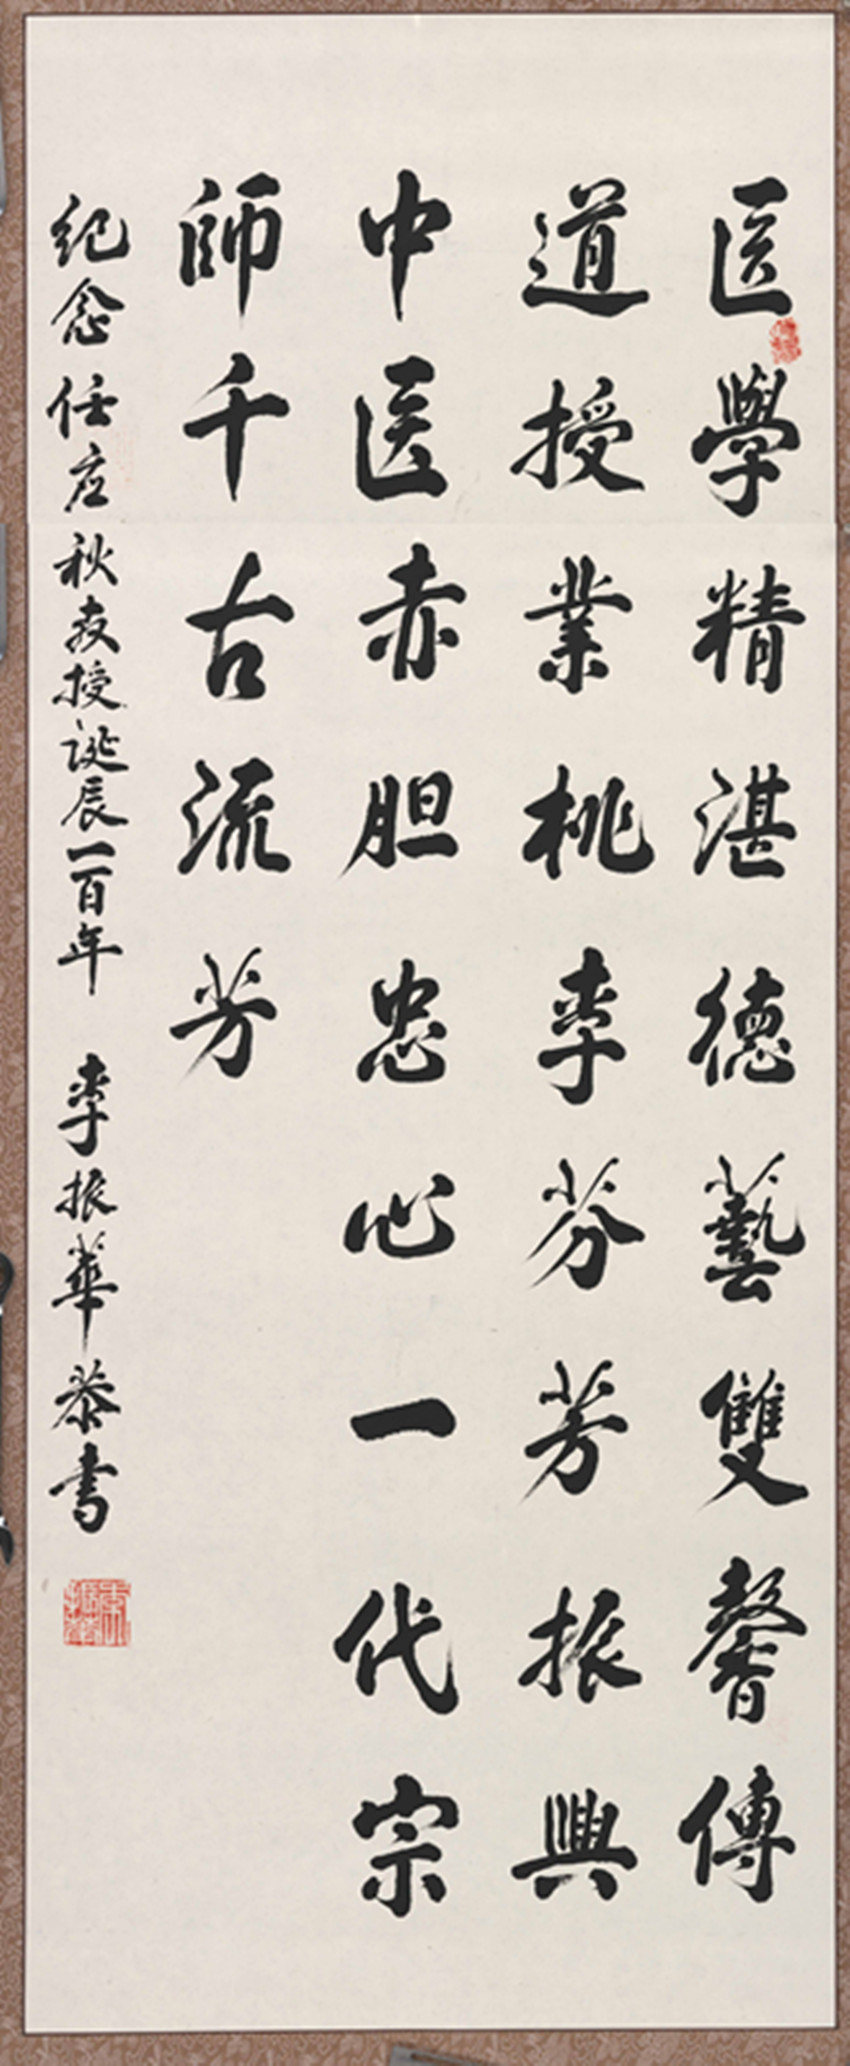 医學精湛德藝雙馨傳
道授業桃李芬芳振興
中医赤胆忠心一代宗
師千古流芳
纪念任应秋教授诞辰一百年 李振華恭书